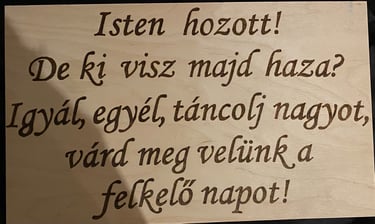 Isten hozott!
De ki visz majd haza?
Igyál, egyél, táncolj nagyot,
várd meg velünk a
felkelő napot!